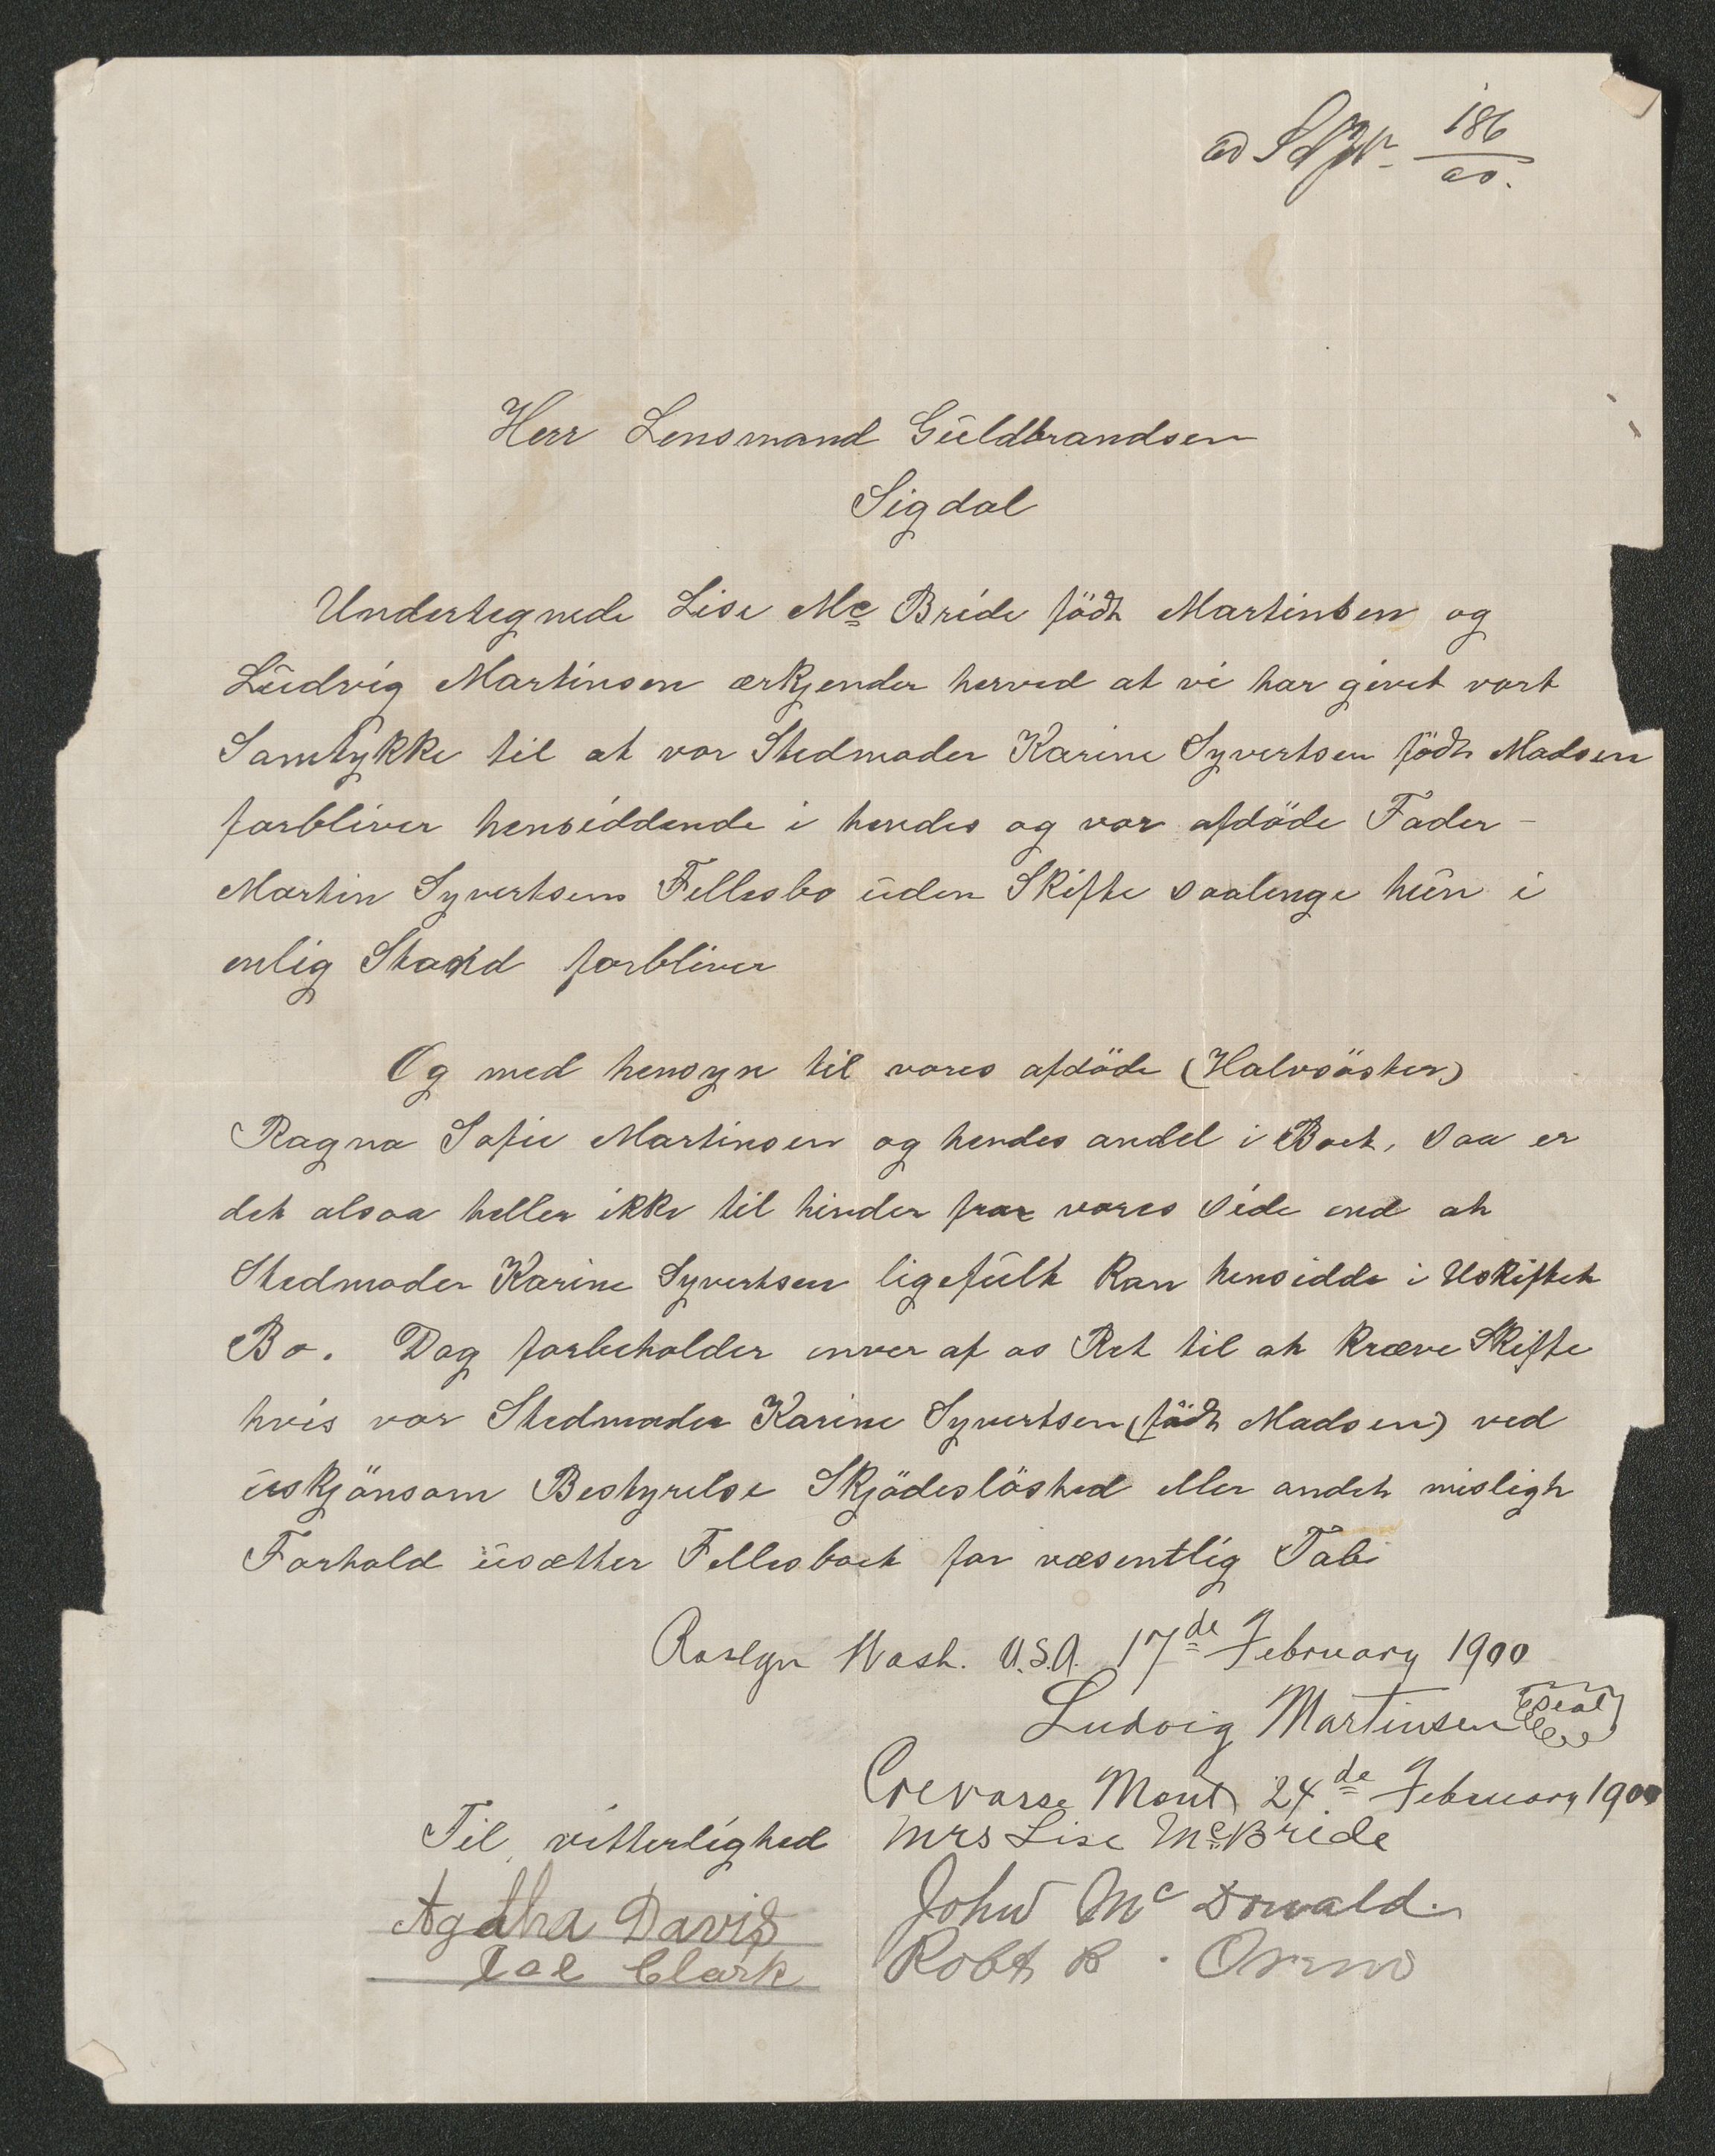 ad 186/00.
Herr Lensmand Guldbrandsen
Sigdal
Undertegnede Lise Mc Bride födt Martinsen og
Ludvig Martinsen ærkjender herved at vi har givet vort
Samtykke til at vor Stedmoder Karine Syvertsen födt Madsen
forbliver hensiddende i hendes og vor afdöde Fader -
Martin Syvertsens Fellesbo uden Skifte saalenge hun i
enlig Stand forbliver
Og med hensyn til vores afdöde (Halvsöster)
Ragna Sofie Martinsen og hendes andel i Boet, saa er
det alsaa heller ikke til hinder fra vores Side end at
Stedmoder Karine Syvertsen ligefult kan hensidde i Uskiftet
Bo. Dog forbeholder enver af os Ret til at kræve Skifte
hvis vor Stedmoder Karine Syvertsen (födt Madsen) ved
uskjönsom Bestyrelse Skjödeslöshed eller andet misligt
Forhold usætter Fellesboet for væsentlig Tab
Roslyn Wash. U.S.A. 17de February 1900
Ludvig Martinsen seal
Crevasse Mont 24de February 1900
Til vitterlighed Mrs Lise McBride
Agatha Davis John Mc Donald
Clark Robt R.